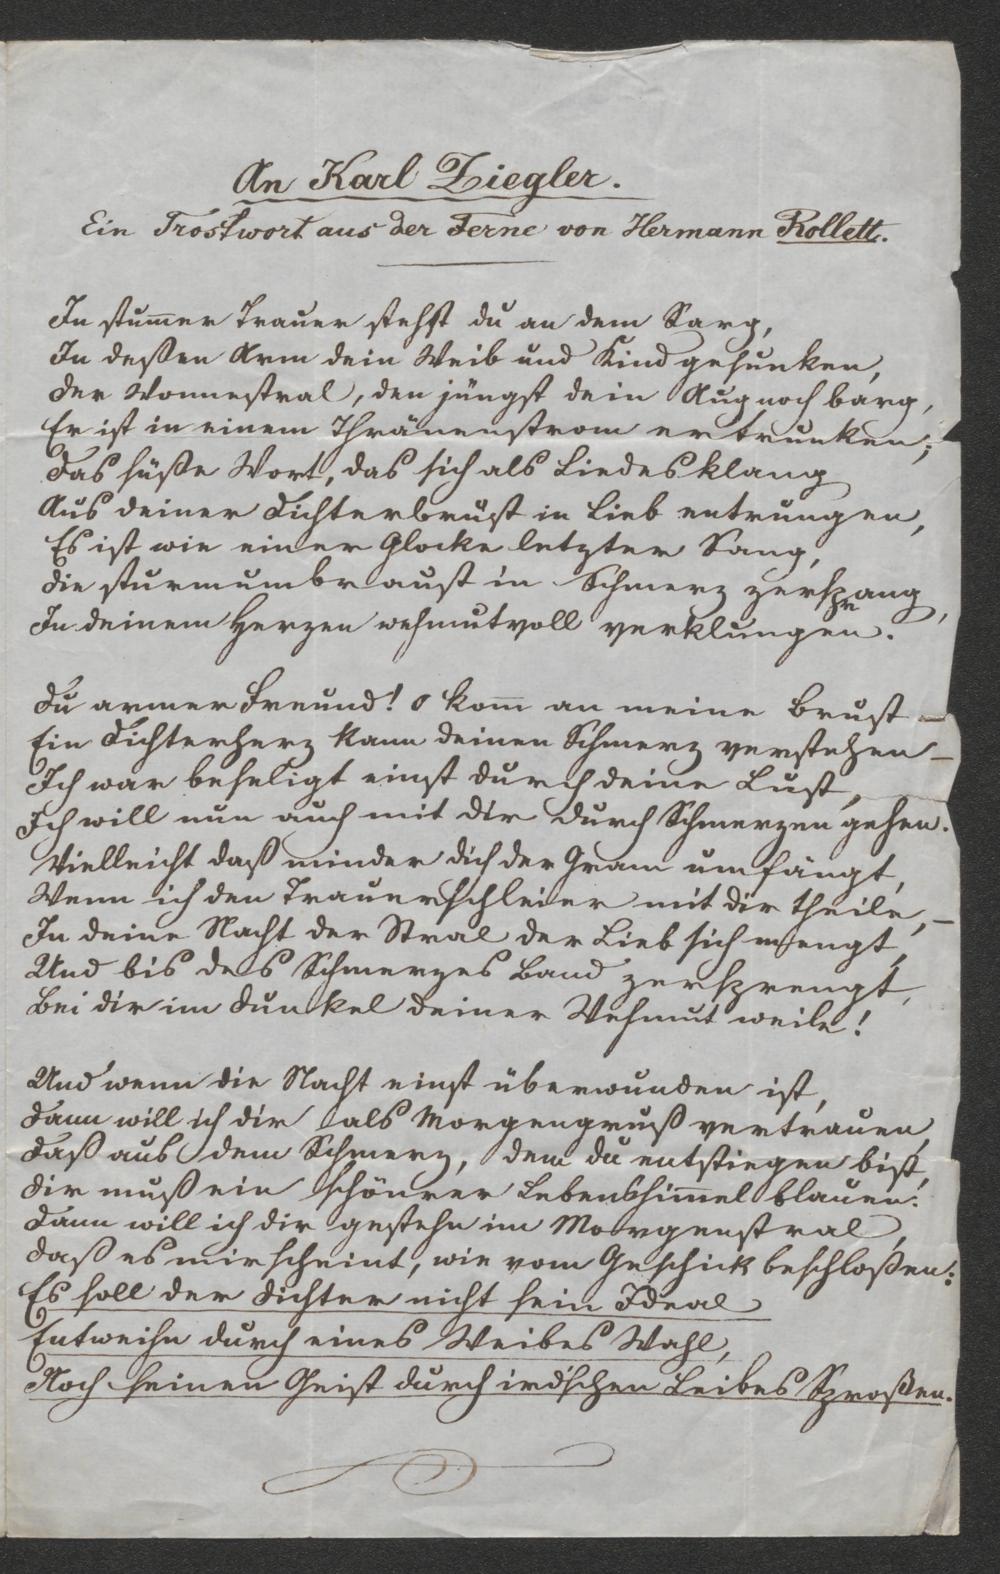 An Karl Ziegler.
Ein Trostwort aus der Ferne von Hermann Rollett.
In stum̄er Trauer stehst du an dem Sarg,
In deßen Arm dein Weib und Kind gesunken,
Der Wonnestral, den jüngst dein Aug noch barg,
Er ist in einem Thränenstrom ertrunken;
Das süße Wort, das sich als Liedesklang
Aus deiner Dichterbrust in Lieb entrungen,
Es ist wie einer Glocke letzter Sang,
Die sturmumbraust in Schmerz zersprang,
In deinem Herzen wehmutvoll verklungen.
Du armer Freund! o kom̄ an meine Brust –
Ein Dichterherz kann deinen Schmerz verstehen –
Ich war beseligt einst durch deine Lust,
Ich will nun auch mit dir durch Schmerzen gehen.
Vielleicht daß minder dich der Gram umfängt,
Wenn ich den Trauerschleier mit dir theile, –
In deine Nacht der Stral der Lieb sich mengt,
Und bis des Schmerzes Band zersprengt,
Bei dir im Dunkel deiner Wehmut weile!
Und wenn die Nacht einst überwunden ist,
Dann will ich dir als Morgengruß vertrauen,
Daß aus dem Schmerz, dem du entstiegen bist,
Dir muß ein schönrer Lebenshim̄el blauen.
Dann will ich dir gestehn im Morgenstral,
Daß es mir scheint, wie vom Geschick beschloßen:
Es soll der Dichter nicht sein Ideal
Entweihn durch eines Weibes Wahl,
Noch seinen Geist durch ird'schen Leibes Sproßen.